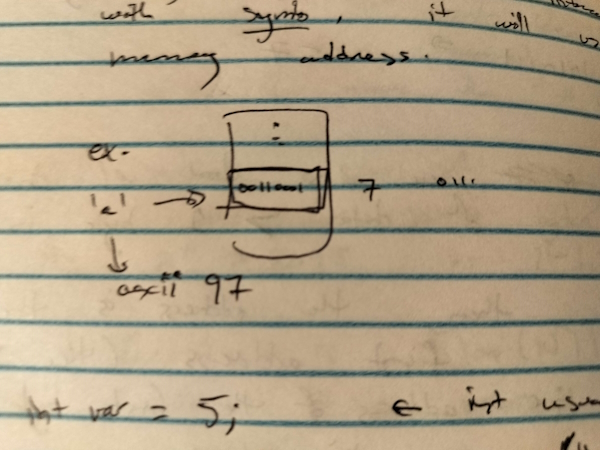 with synto, it will
memory address.
ex.
00110001
'a' → 7 011..
↓
ascii 97
int var = 5; ← int usua